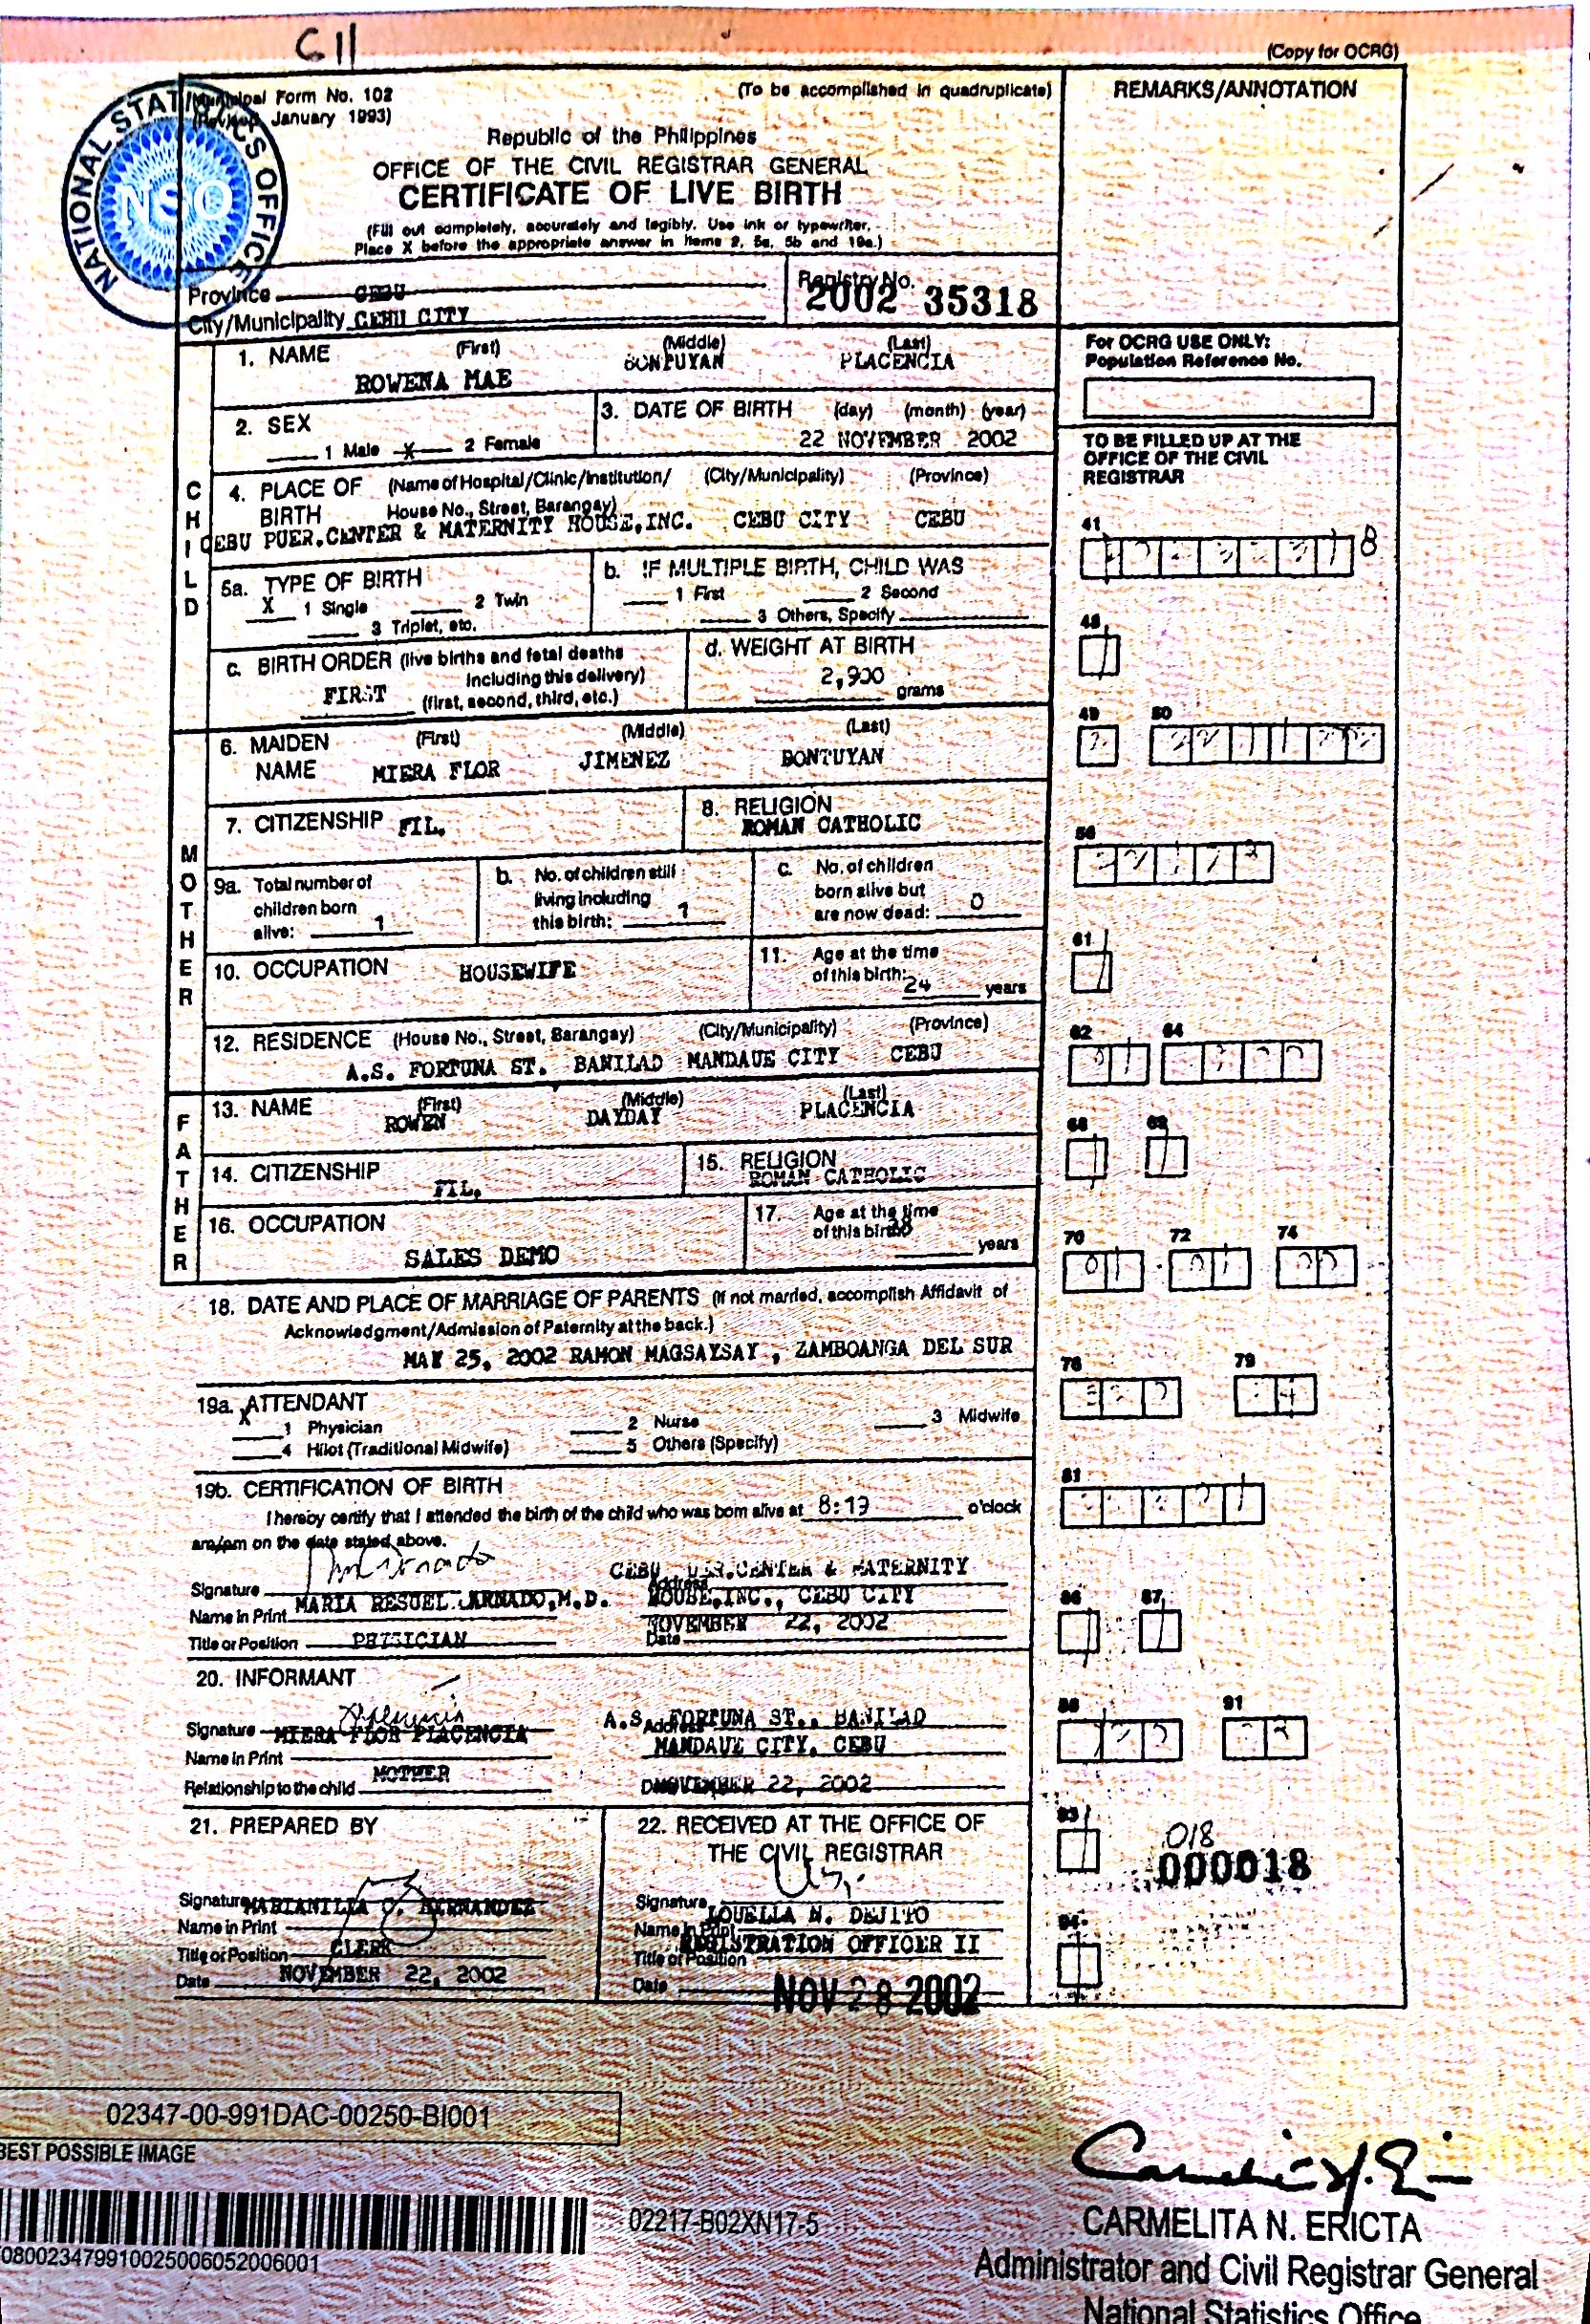 C11
(Copy for OCRG)
NATIONAL STATISTICS OFFICE
NSO
Municipal Form No. 102
(Revised January 1993)
(To be accomplished in quadruplicate)
REMARKS/ANNOTATION
Republic of the Philippines
OFFICE OF THE CIVIL REGISTRAR GENERAL
CERTIFICATE OF LIVE BIRTH
(Fill out completely, accurately and legibly. Use ink or typewriter.
Place X before the appropriate answer in items 2, 5a, 5b and 19a.)
Province CEBU
City/Municipality CEBU CITY
Registry No.
2002 35318
For OCRG USE ONLY:
Population Reference No.
CHILD
1. NAME (First) (Middle) (Last)
ROWENA MAE BONTUYAN PLACENCIA
2. SEX
1 Male X 2 Female
3. DATE OF BIRTH (day) (month) (year)
22 NOVEMBER 2002
TO BE FILLED UP AT THE
OFFICE OF THE CIVIL
REGISTRAR
4. PLACE OF BIRTH (Name of Hospital/Clinic/Institution/ (City/Municipality) (Province)
House No., Street, Barangay)
CEBU PUER.CENTER & MATERNITY HOUSE,INC. CEBU CITY CEBU
41
8
5a. TYPE OF BIRTH
X 1 Single 2 Twin
3 Triplet, etc.
b. IF MULTIPLE BIRTH, CHILD WAS
1 First 2 Second
3 Others, Specify
c. BIRTH ORDER (live births and fetal deaths
including this delivery)
FIRST (first, second, third, etc.)
d. WEIGHT AT BIRTH
2,900
grams
48
49 50
MOTHER
6. MAIDEN NAME (First) (Middle) (Last)
MIERA FLOR JIMENEZ BONTUYAN
7. CITIZENSHIP FIL.
8. RELIGION
ROMAN CATHOLIC
56
9a. Total number of
children born
alive: 1
b. No. of children still
living including
this birth: 1
c. No. of children
born alive but
are now dead: 0
10. OCCUPATION HOUSEWIFE
11. Age at the time
of this birth: 24 years
61
12. RESIDENCE (House No., Street, Barangay) (City/Municipality) (Province)
A.S. FORTUNA ST. BANILAD MANDAUE CITY CEBU
62 64
FATHER
13. NAME (First) (Middle) (Last)
ROWEN DAYDAY PLACENCIA
68 69
14. CITIZENSHIP
FIL.
15. RELIGION
ROMAN CATHOLIC
16. OCCUPATION
SALES DEMO
17. Age at the time
of this birth
years
70 72 74
18. DATE AND PLACE OF MARRIAGE OF PARENTS (If not married, accomplish Affidavit of
Acknowledgment/Admission of Paternity at the back.)
MAY 25, 2002 RAMON MAGSAYSAY, ZAMBOANGA DEL SUR
76 79
19a. ATTENDANT
X 1 Physician 2 Nurse 3 Midwife
4 Hilot (Traditional Midwife) 5 Others (Specify)
19b. CERTIFICATION OF BIRTH
I hereby certify that I attended the birth of the child who was born alive at 8:17 o'clock
am/pm on the date stated above.
81
CEBU PUER.CENTER & MATERNITY
Signature Address
Name in Print MARIA RESUEL ARNADO,M.D. HOUSE,INC., CEBU CITY
Title or Position PHYSICIAN
NOVEMBER 22, 2002
Date
86 87
20. INFORMANT
Signature MIERA FLOR PLACENCIA
Address A.S. FORTUNA ST., BANILAD
Name in Print
MANDAUE CITY, CEBU
Relationship to the child MOTHER
Date NOVEMBER 22, 2002
88 91
21. PREPARED BY
22. RECEIVED AT THE OFFICE OF
THE CIVIL REGISTRAR
93
018
000018
Signature MARIANILLA C. HERNANDEZ
Name in Print
Title or Position CLERK
Date NOVEMBER 22, 2002
Signature LOUELLA N. DEJITO
Name in Print
REGISTRATION OFFICER II
Title or Position
Date NOV 28 2002
94
02347-00-991DAC-00250-BI001
BEST POSSIBLE IMAGE
02217-B02XN17-5
080023479910025006052006001
CARMELITA N. ERICTA
Administrator and Civil Registrar General
National Statistics Office